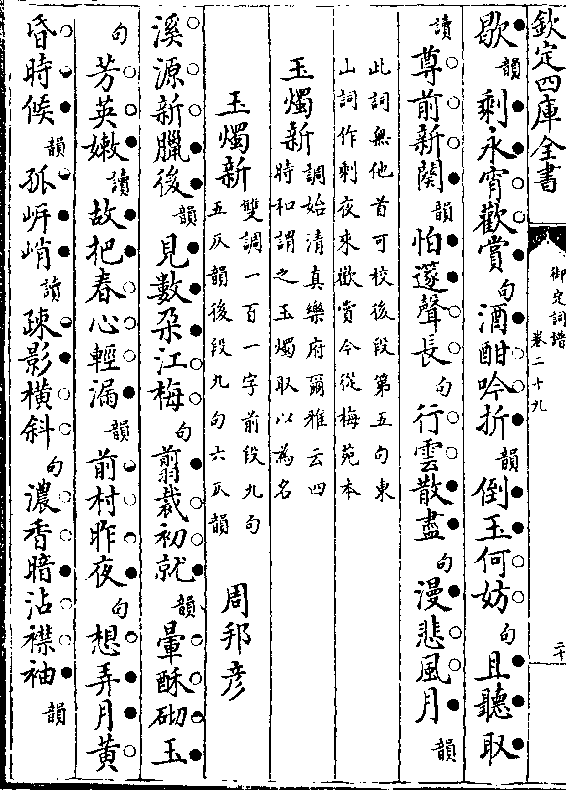 欽定四庫全書
御定詞譜
卷二十九
二十
歇韻剩永宵歡賞句酒酣吟折韻倒玉何妨句且聽取
讀尊前新闋韻怕蘧聲長句行雲散盡句漫悲風月韻
此詞無他首可校後段第五句東
山詞作剩夜來歡賞今從梅苑本
玉燭新調始清真樂府爾雅云四
時和謂之玉燭取以為名
玉燭新雙調一百一字前段九句
五仄韻後段九句六仄韻
周邦彥
溪源新臘後韻見數朶江梅句翦裁初就韻暈酥砌玉
句芳英嫩讀故把春心輕漏韻前村昨夜句想弄月黃
昏時候韻孤岍峭讀疎影橫斜句濃香暗沾襟袖韻